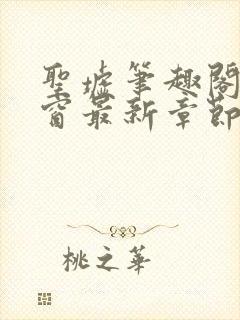 聖墟筆趣閣
窗最新章節
桃之華